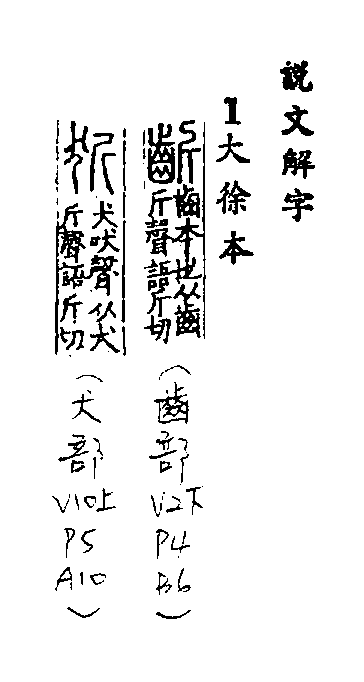 說文解字
1大徐本
齗 齒本也从齒
斤聲語斤切
(齒部
V2下
P4
B6)
㹞 犬吠聲从犬
斤聲語斤切
(犬部
V10上
P5
A10)